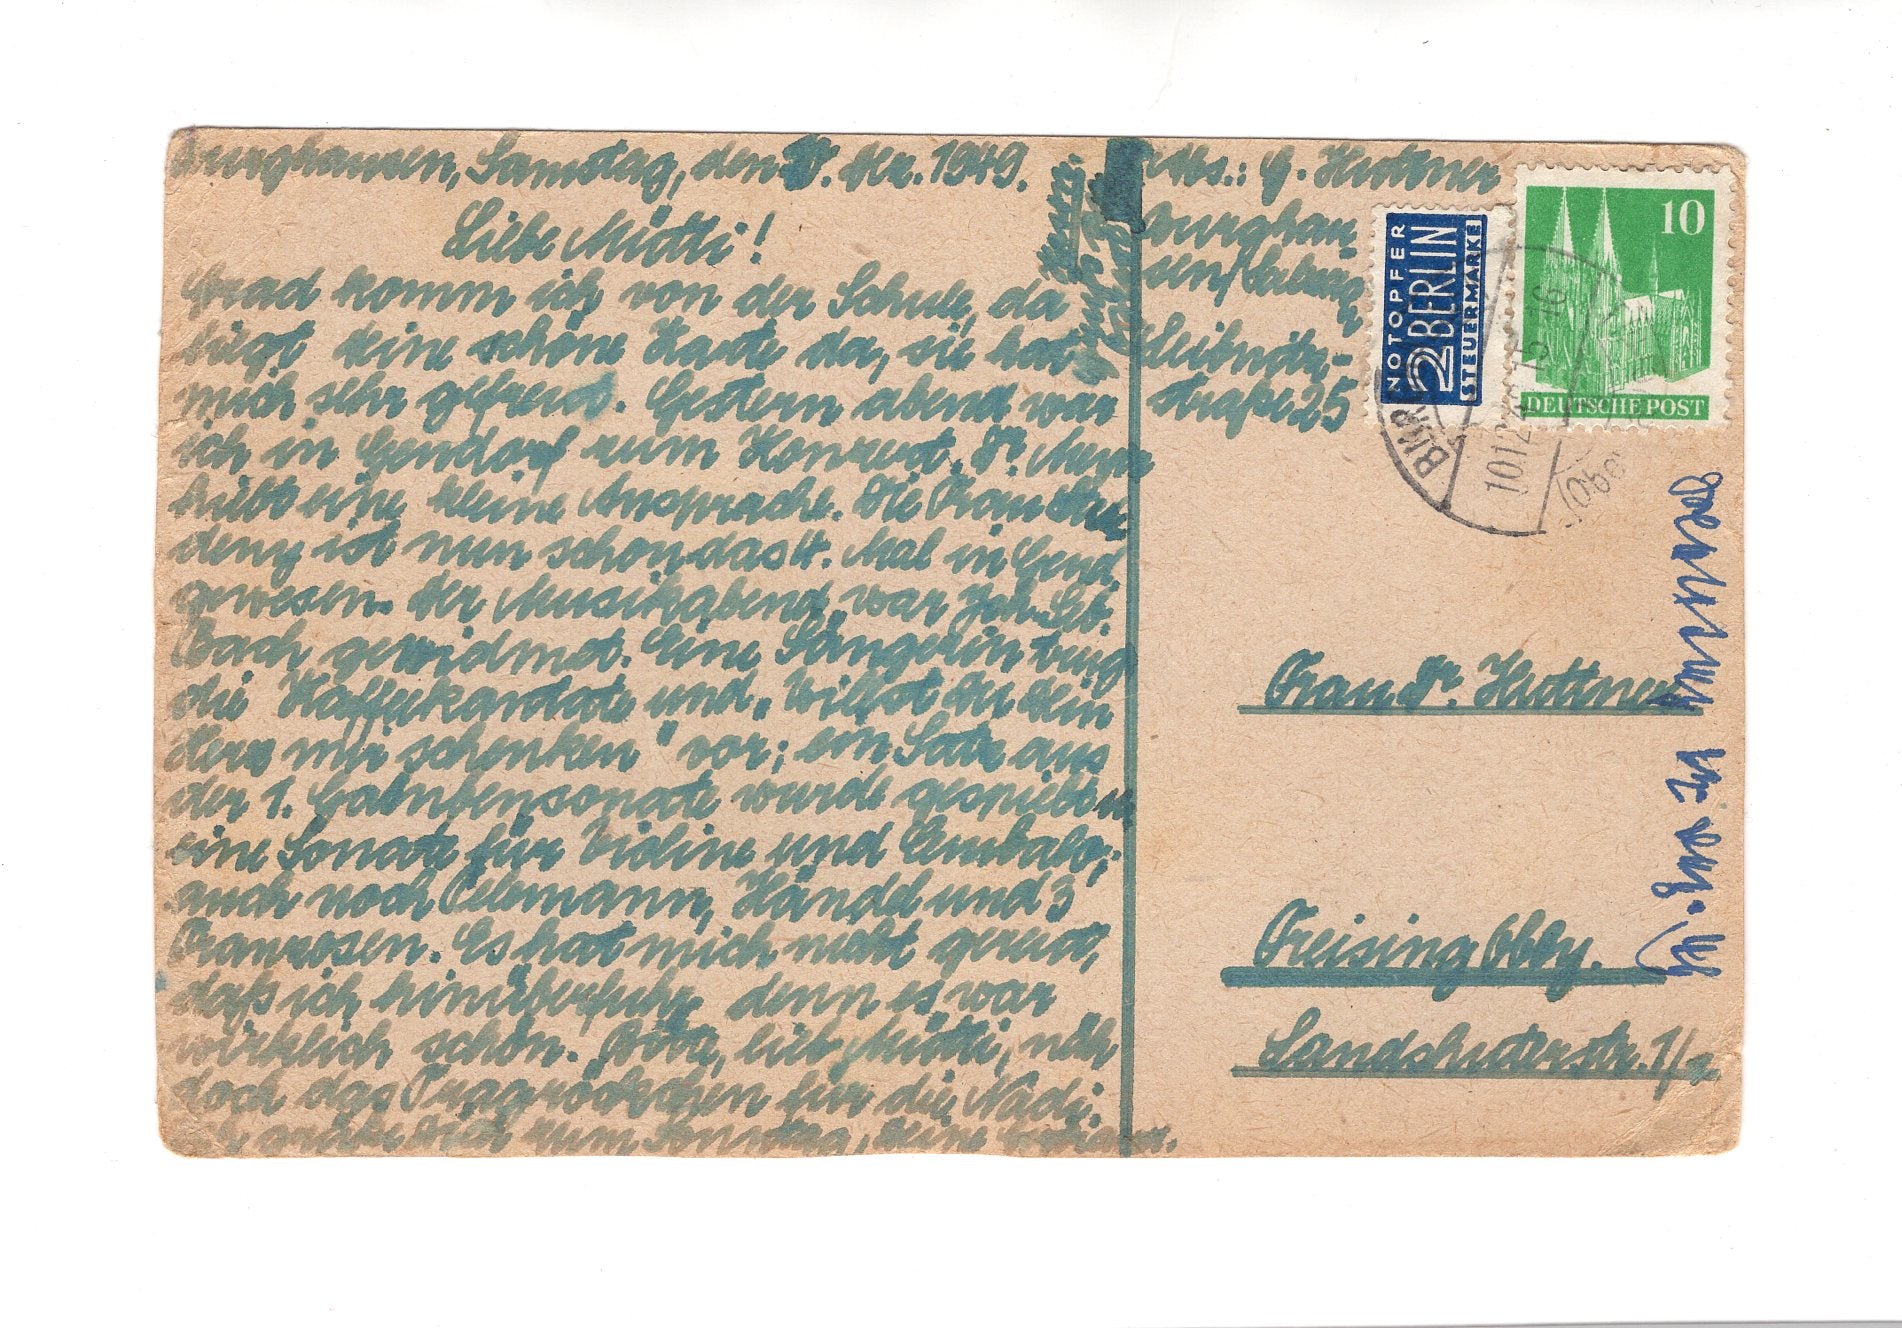 Burghausen, Samstag, den 10. Dez. 1949.
Liebe Mutti!
Grad komm ich von der Schule, da
liegt Deine schöne Karte da, sie hat
mich sehr gefreut. Gestern abend war
ich in Gendorf zum Konzert. Dr. Meyer
hielt eine kleine Ansprache. Die Frau
ist nun schon das 4. Mal in Gend.
gewesen. Der Musikabend war Joh. Seb.
Bach gewidmet. Eine Sängerin trug
die Kaffeekantate und "Willst du dein
Herz mir schenken" vor; ein Satz aus
der 1. Gambensonate wurde gespielt u.
eine Sonate für Violine und Cembalo;
auch noch Telemann, Händel und 3
Franzosen. Es hat mich nicht gereut,
daß ich hinüberfuhr, denn es war
wirklich schön. Bitte, lieb Mutti, näh
doch das Tragröckchen für die Nadi.
zum Sonntag, Deine
Abs.: G. Huttner
Burghau
sen/Salzach
Leibnitz-
straße 25
NOTOPFER
2 BERLIN
STEUERMARKE
10
DEUTSCHE POST
BURG
10.12.4 15-16
(Ober
Frau Dr. Huttner
Freising Obby.
Landshuterstr. 1/2